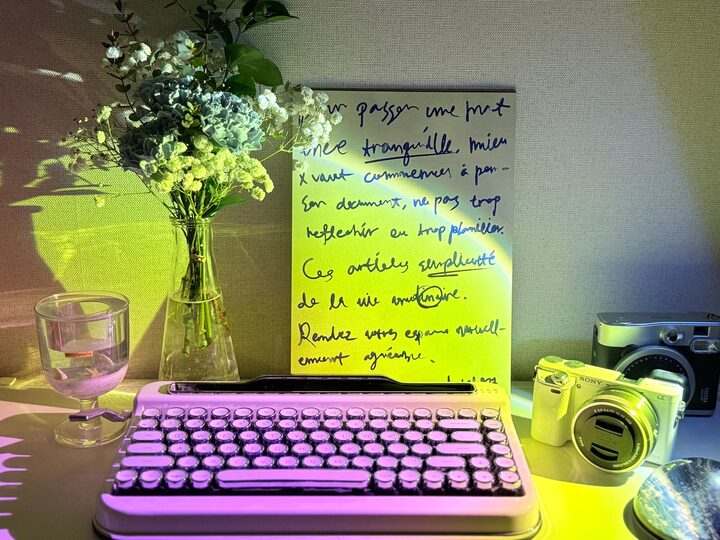 passer une
tranquille. mieu
x vaut commencer à pen-
ser document, ne pas trop
reflechir ou trop planifier.
Ces articles simplicité
de la vie
Rendez votres espaces naturell-
ement agréable.
SONY
α